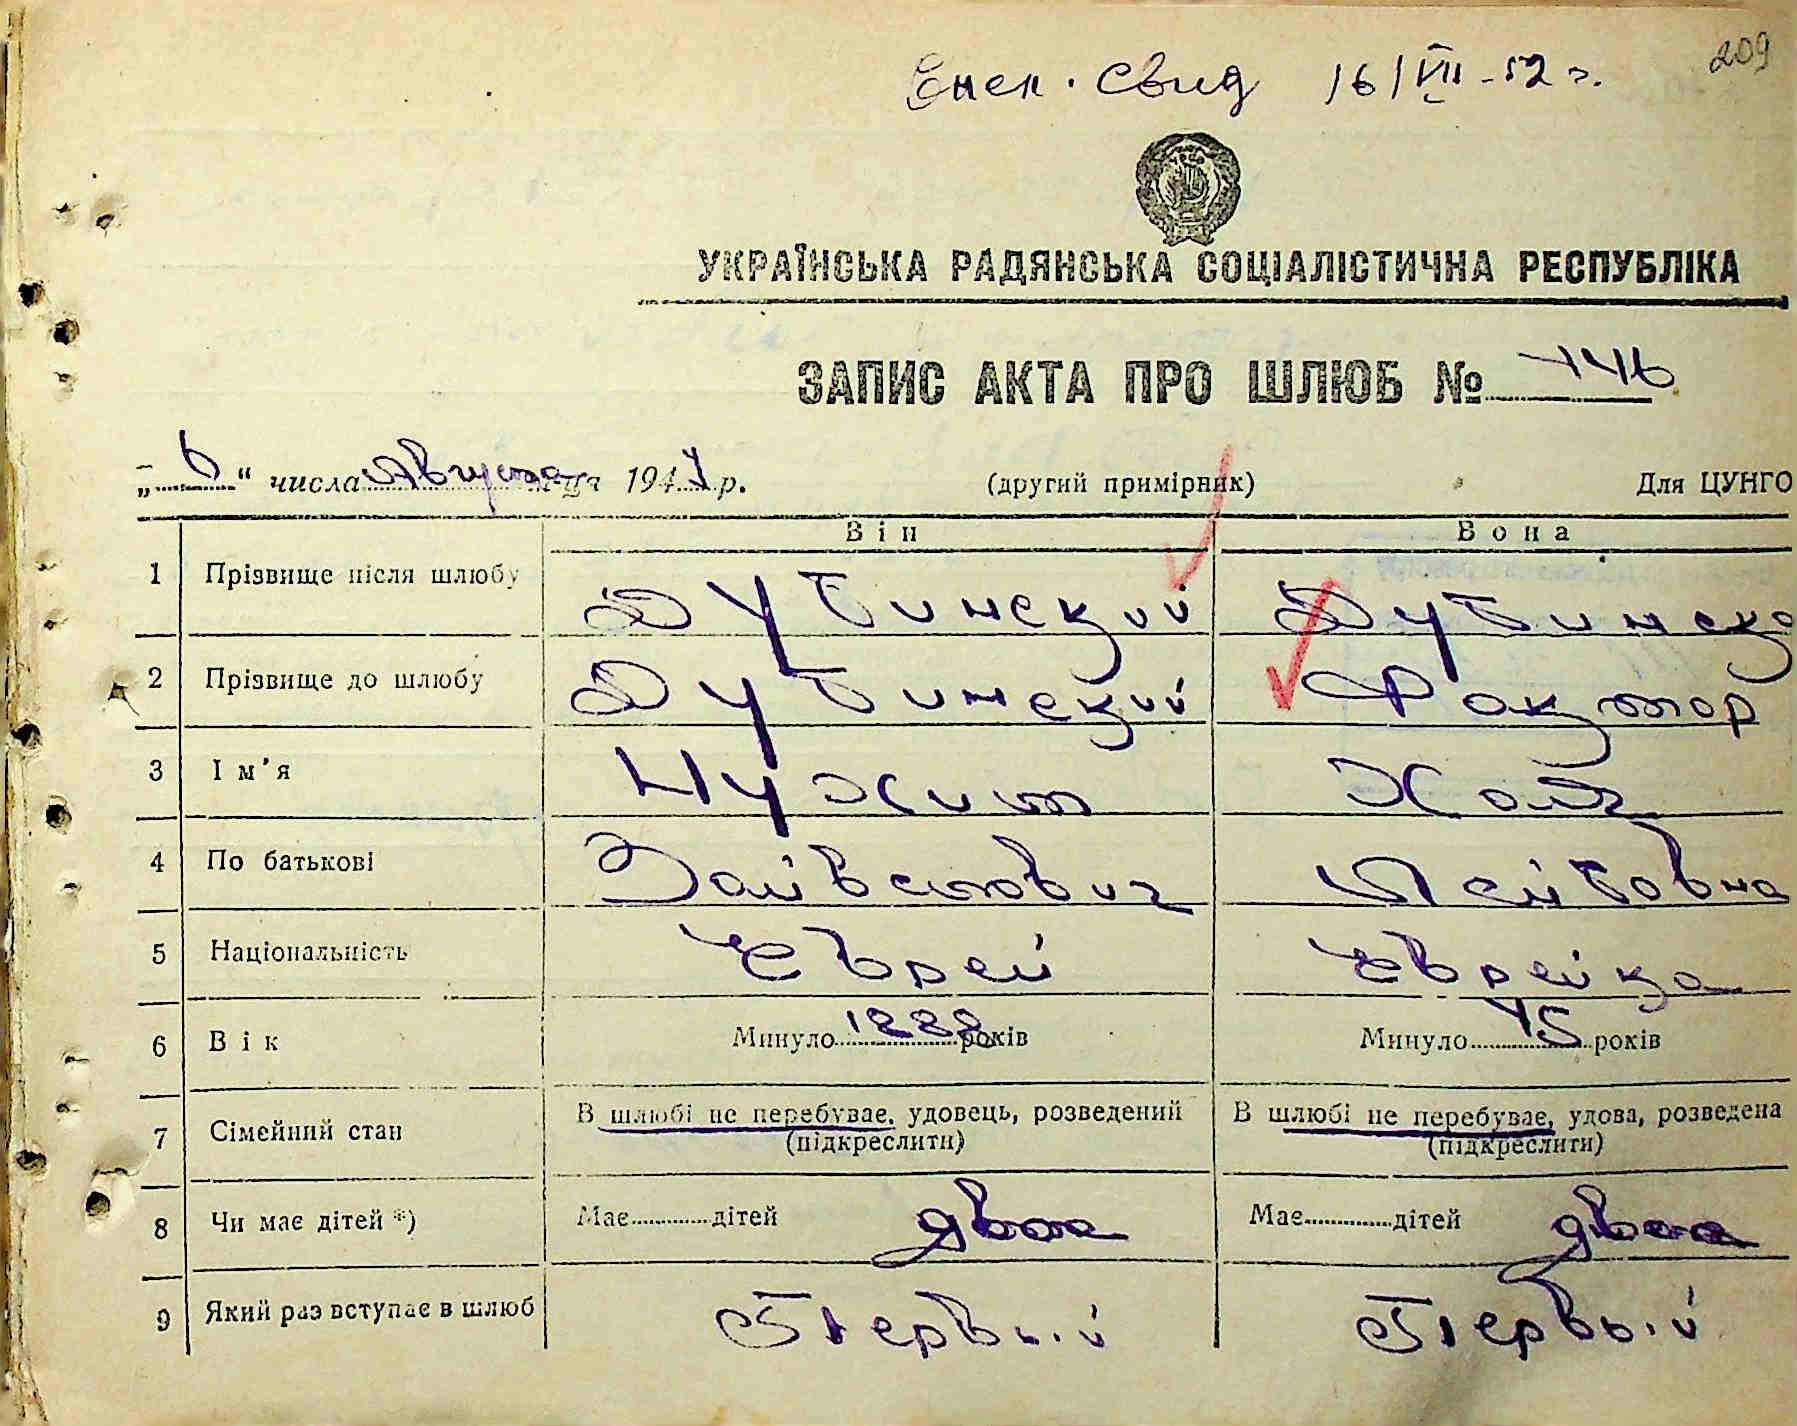 209
свид 16/VII-52 г.
УКРАЇНСЬКА РАДЯНСЬКА СОЦІАЛІСТИЧНА РЕСПУБЛІКА
ЗАПИС АКТА ПРО ШЛЮБ № 146
„6“ числа Августа місяця 1947 р. (другий примірник) Для ЦУНГО
Він Вона
1 Прізвище після шлюбу Дубинский Дубинска
2 Прізвище до шлюбу Дубинский Фактор
3 Ім'я Нухим Хая
4 По батькові Лейбовна
5 Національність Еврей Еврейка
6 Вік Минуло 1888 років Минуло 45 років
7 Сімейний стан В шлюбі не перебуває, удовець, розведений В шлюбі не перебуває, удова, розведена
(підкреслити) (підкреслити)
8 Чи має дітей *) Має дітей двое Має дітей двое
9 Який раз вступає в шлюб Первый Первый